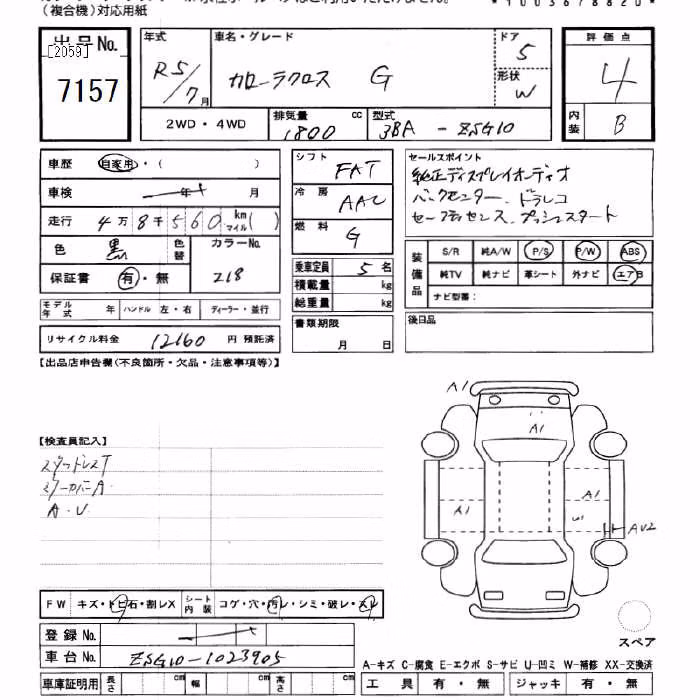 （複合機）対応用紙
出品No. [2059] 7157
年式 R5/7月
車名・グレード カローラクロス G
ドア 5
形状 W
評価点 4
内装 B
2WD・4WD
排気量 1800 cc
型式 3BA-ZSG10
車歴 自家用・( )
車検 年 月
走行 4万8千560 km マイル( )
色 黒 色替 カラーNo. 218
保証書 有・無
モデル年式 年 ハンドル 左・右 ディーラー・並行
リサイクル料金 12160 円 預託済
シフト FAT
冷房 AAC
燃料 G
乗車定員 5名
積載量 kg
総重量 kg
書類期限 月 日
セールスポイント
純正ディスプレイオーディオ
バックモニター、ドラレコ
セーフティセンス、プッシュスタート
装備品 S/R 純A/W P/S P/W ABS
純TV 純ナビ 革シート 外ナビ エアB
ナビ型番：
後日品
【出品店申告欄(不良箇所・欠品・注意事項等)】
【検査員記入】
スタッドレスT
ミラーカバーA.
A・U
A1
A1
A1
A1
AU2
FW キズ・トビ石・割レX シート内装 コゲ・穴・汚レ・シミ・破レ・スレ
登録No.
車台No. ZSG10-1023905
車庫証明用 長さ cm 幅 cm 高さ cm
スペア
A-キズ C-腐食 E-エクボ S-サビ U-凹ミ W-補修 XX-交換済
工具 有・無 ジャッキ 有・無